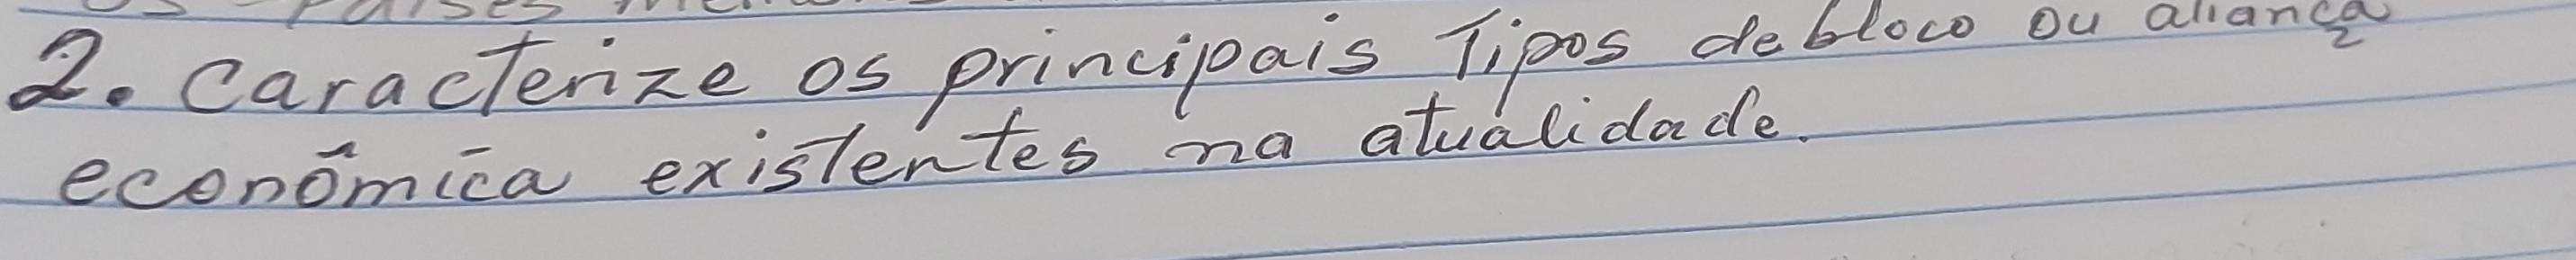 os países
2. caracterize os principais Tipos de bloco ou aliança
econômica existentes na atualidade.